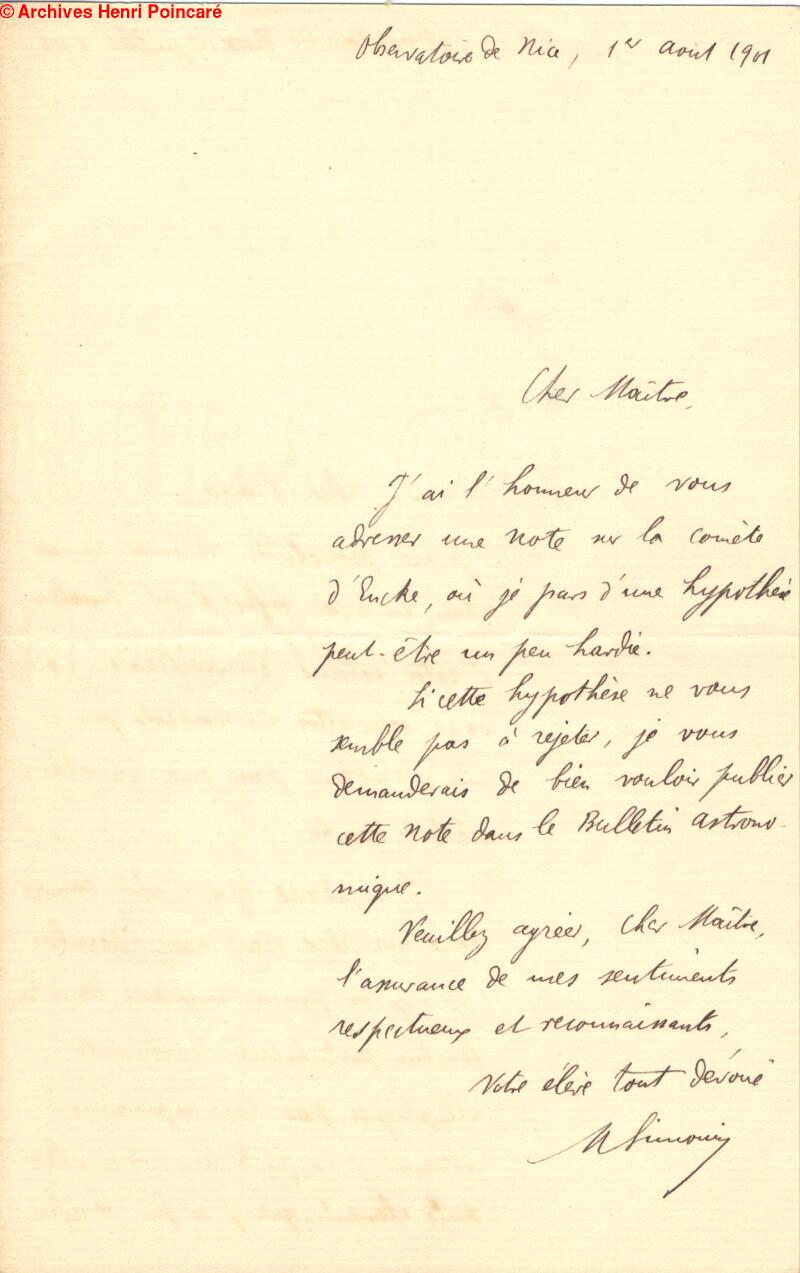 © Archives Henri Poincaré
Observatoire de Nice, 1er aout 1901
Cher Maître,
J'ai l'honneur de vous
adresser une note sur la comète
d'Encke, où je pars d'une hypothèse
peut-être un peu hardie.
Si cette hypothèse ne vous
semble pas à rejeter, je vous
demanderais de bien vouloir publier
cette note dans le Bulletin astrono-
mique.
Veuillez agréer, Cher Maître,
l'assurance de mes sentiments
respectueux et reconnaissants,
Votre élève tout dévoué
M Simonin